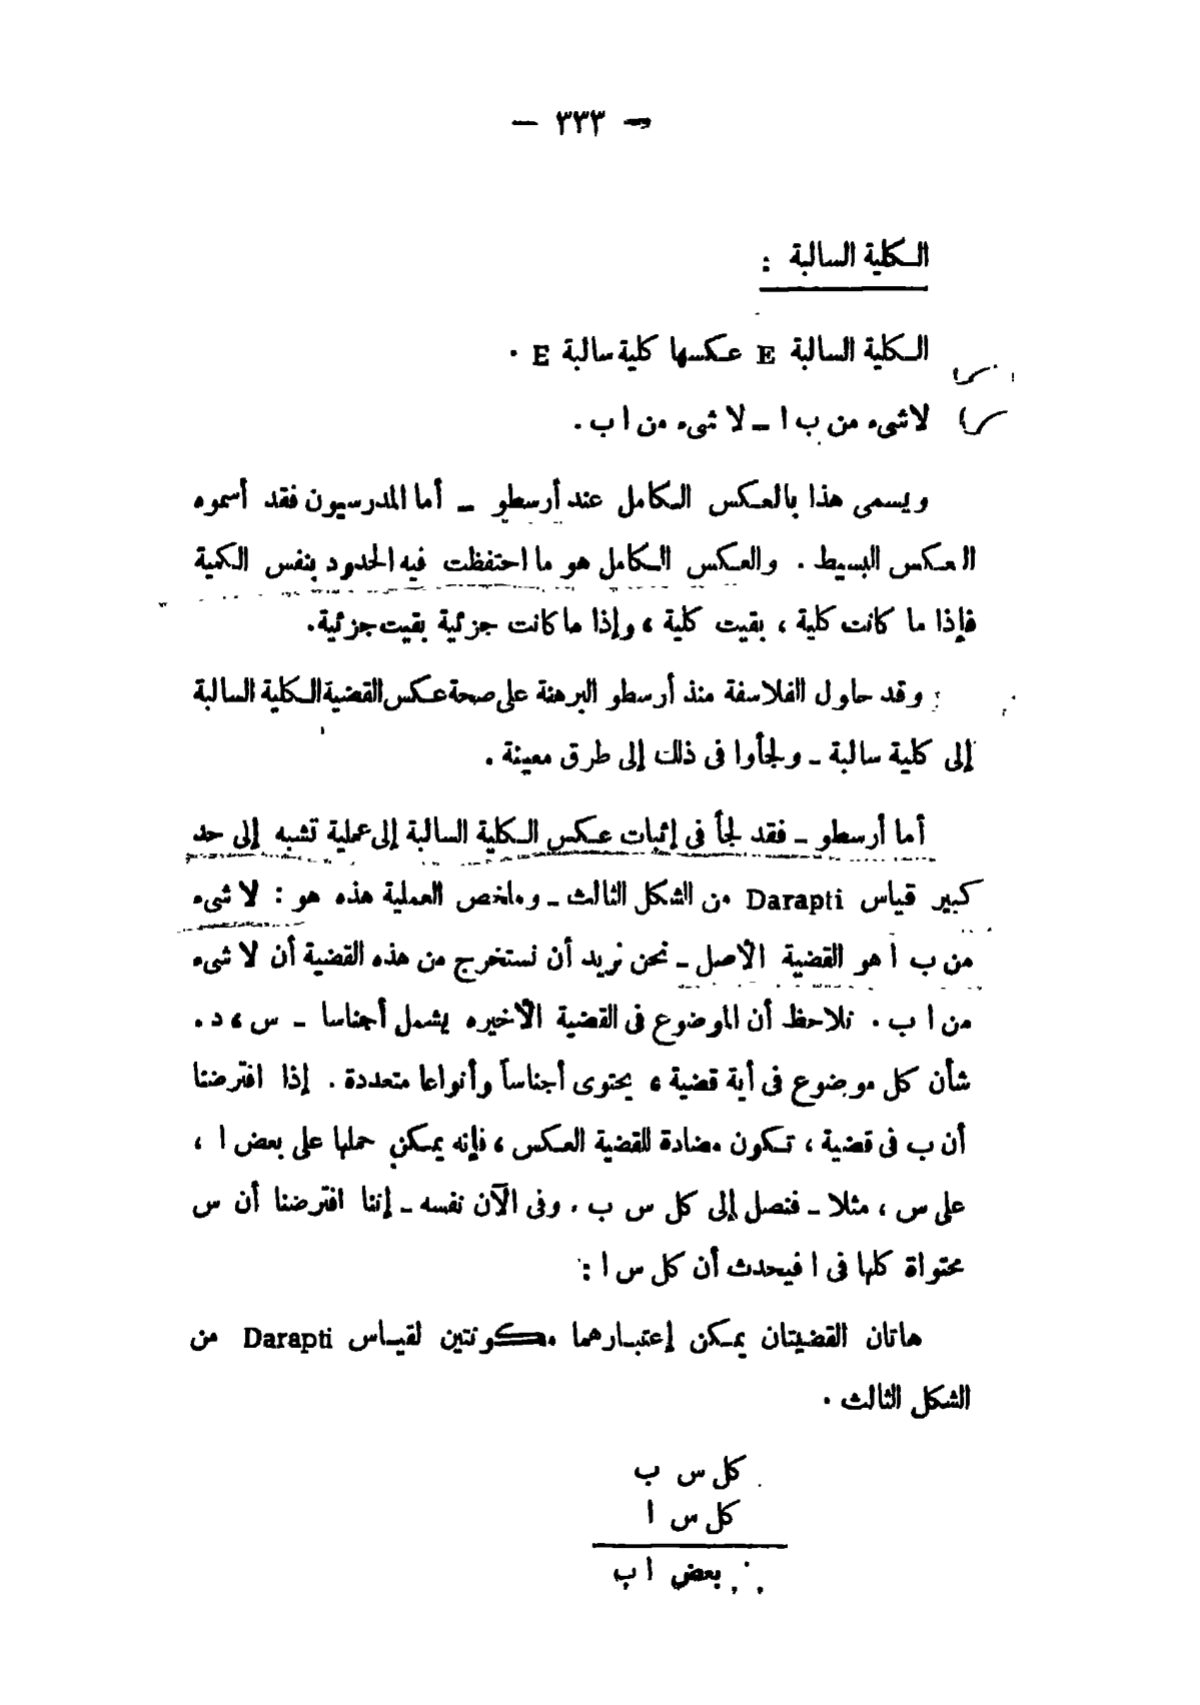 — ٣٣٣ —
الكلية السالبة :
الكلية السالبة E عكسها كلية سالبة E .
لاشىء من ب ا – لا شىء من ا ب .
ويسمى هذا بالعكس الكامل عند أرسطو – أما المدرسيون فقد أسموه
العكس البسيط . والعكس الكامل هو ما احتفظت فيه الحدود بنفس الكمية
فإذا ما كانت كلية ، بقيت كلية ، وإذا ما كانت جزئية بقيت جزئية .
وقد حاول الفلاسفة منذ أرسطو البرهنة على صحة عكس القضية الكلية السالبة
إلى كلية سالبة – ولجأوا فى ذلك إلى طرق معينة .
أما أرسطو – فقد لجأ فى إثبات عكس الكلية السالبة إلى عملية تشبه إلى حد
كبير قياس Darapti من الشكل الثالث – وملخص العملية هذه هو : لا شىء
من ب ا هو القضية الأصل – نحن نريد أن نستخرج من هذه القضية أن لا شىء
من ا ب . نلاحظ أن الموضوع فى القضية الأخيره يشمل أجناسا – س ، د .
شأن كل موضوع فى أية قضية ، يحتوى أجناساً وأنواعا متعددة . إذا افترضنا
أن ب فى قضية ، تكون مضادة للقضية العكس ، فإنه يمكن حملها على بعض ا ،
على س ، مثلا – فنصل إلى كل س ب . وفى الآن نفسه – إننا افترضنا أن س
محتواة كلها فى ا فيحدث أن كل س ا :
هاتان القضيتان يمكن إعتبارهما مكونتين لقياس Darapti من
الشكل الثالث .
كل س ب
كل س ا
∴ بعض ا ب